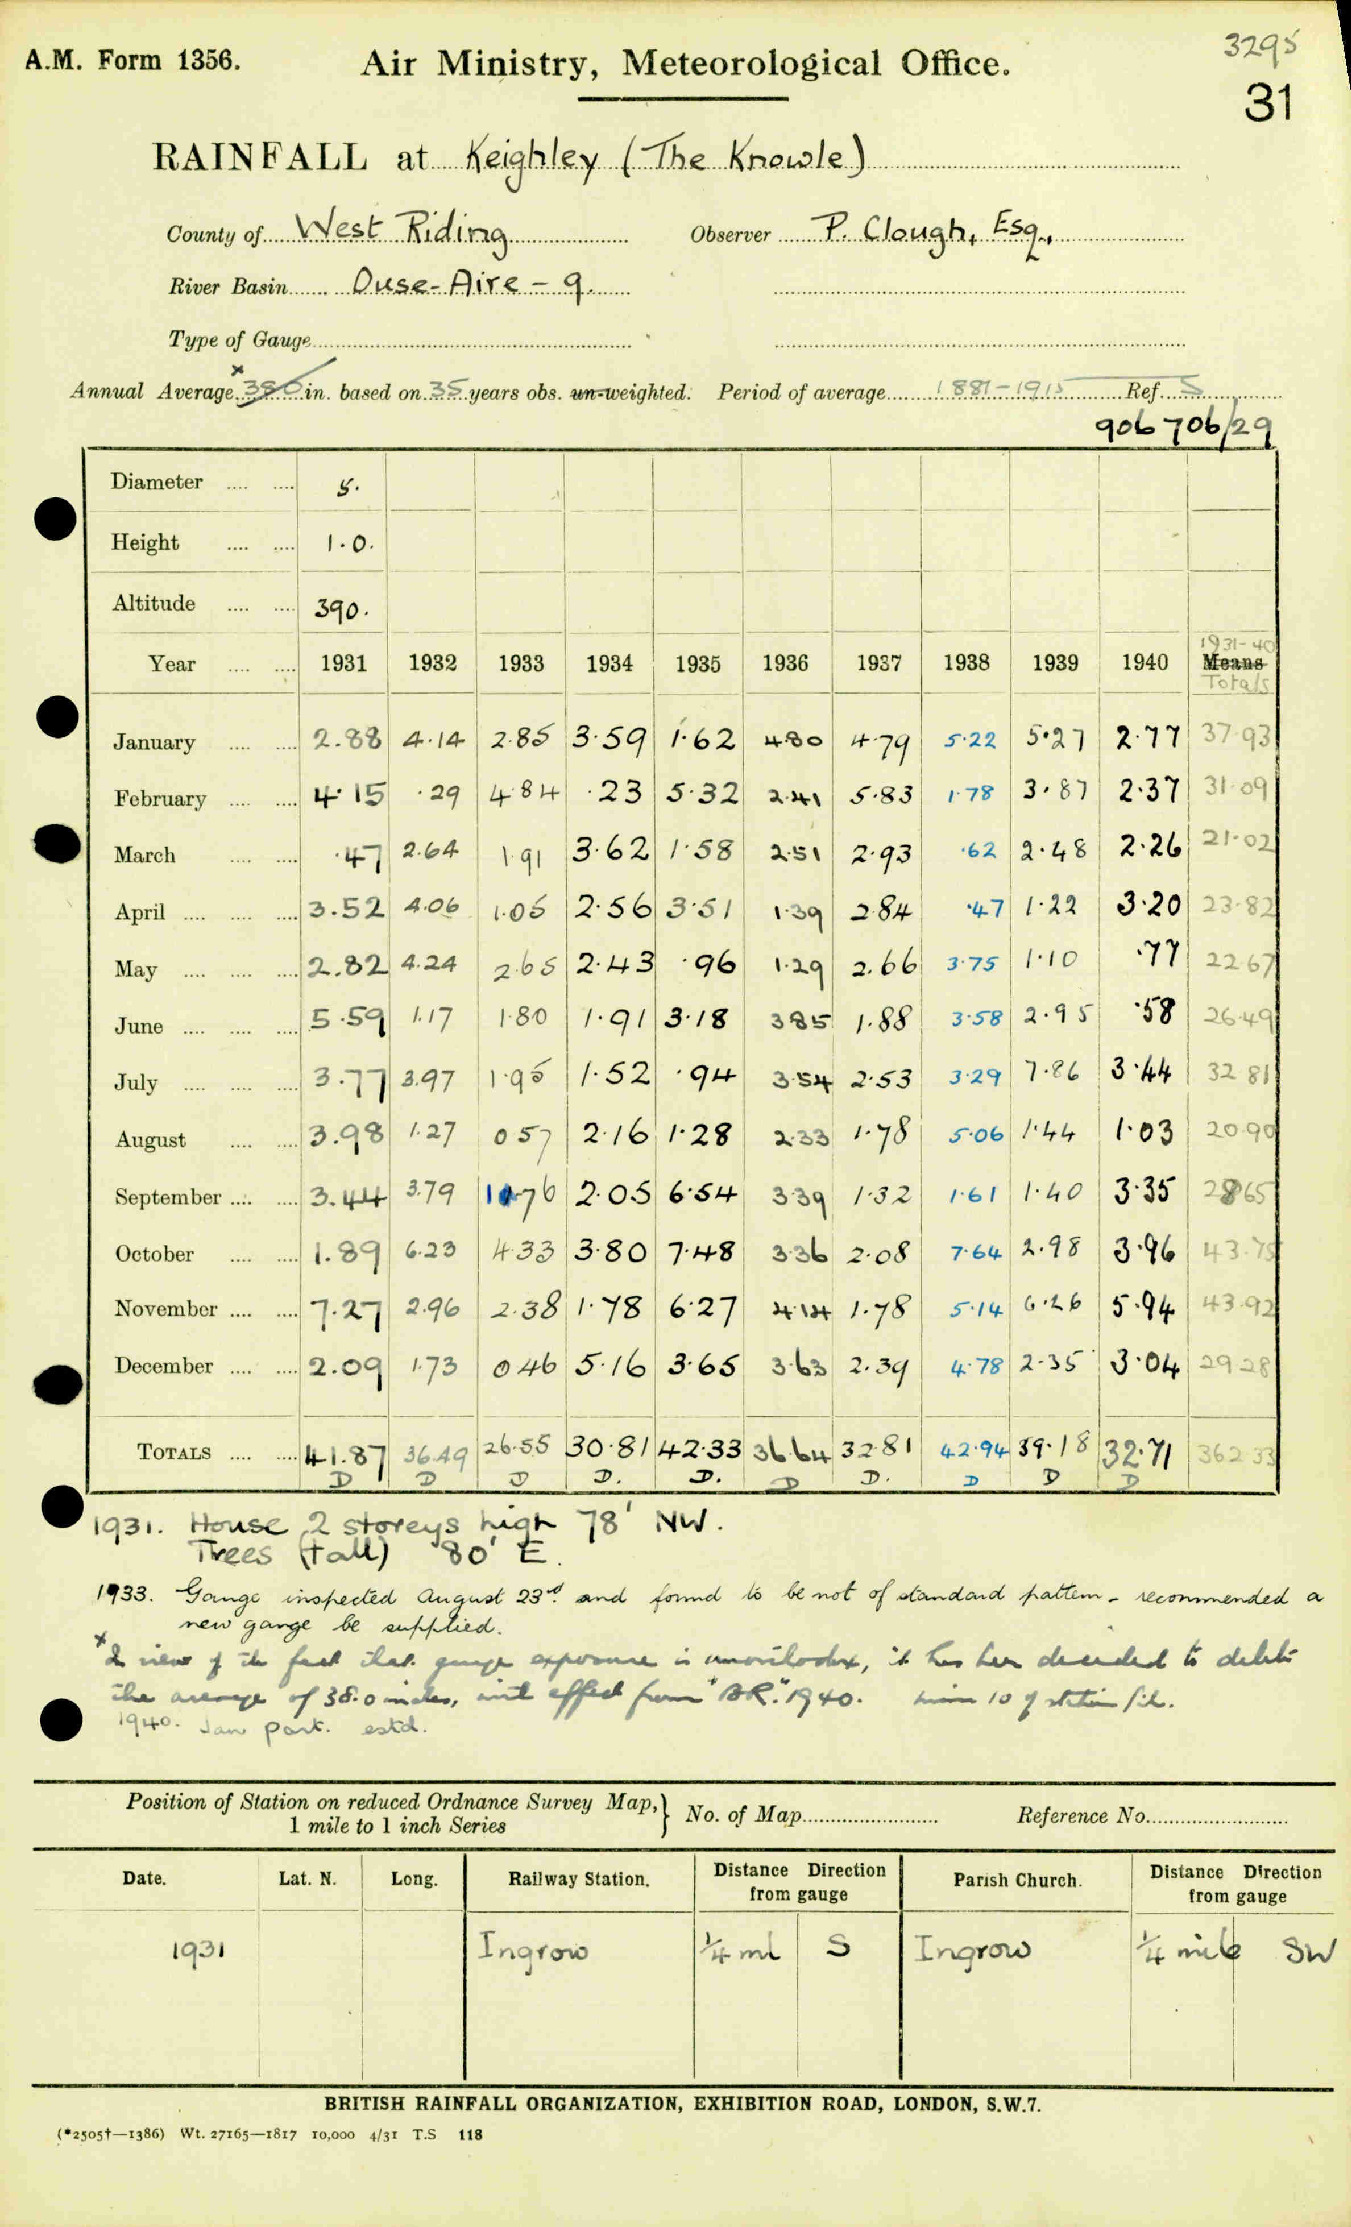 3295
A.M. Form 1356. Air Ministry, Meteorological Office.
31
RAINFALL at Keighley (The Knowle)
County of West Riding Observer P. Clough, Esq.,
River Basin Ouse-Aire - 9.
Type of Gauge
Annual Average x 380 in. based on 35 years obs. un-weighted. Period of average 1881-1915 Ref. S
906706/29
Diameter 5.
Height 1.0.
Altitude 390.
1931-40
Year 1931 1932 1933 1934 1935 1936 1937 1938 1939 1940 Means
Totals
January 2.88 4.14 2.85 3.59 1.62 4.80 4.79 5.22 5.27 2.77 37.93
February 4.15 .29 4.84 .23 5.32 2.41 5.83 1.78 3.87 2.37 31.09
March .47 2.64 1.91 3.62 1.58 2.51 2.93 .62 2.48 2.26 21.02
April 3.52 4.06 1.05 2.56 3.51 1.39 2.84 .47 1.22 3.20 23.82
May 2.82 4.24 2.65 2.43 .96 1.29 2.66 3.75 1.10 .77 22.67
June 5.59 1.17 1.80 1.91 3.18 3.85 1.88 3.58 2.95 .58 26.49
July 3.77 3.97 1.95 1.52 .94 3.54 2.53 3.29 7.86 3.44 32.81
August 3.98 1.27 0.57 2.16 1.28 2.33 1.78 5.06 1.44 1.03 20.90
September 3.44 3.79 1.76 2.05 6.54 3.39 1.32 1.61 1.40 3.35 28.65
October 1.89 6.23 4.33 3.80 7.48 3.36 2.08 7.64 2.98 3.96 43.75
November 7.27 2.96 2.38 1.78 6.27 4.14 1.78 5.14 6.26 5.94 43.92
December 2.09 1.73 0.46 5.16 3.65 3.63 2.39 4.78 2.35 3.04 29.28
TOTALS 41.87 36.49 26.55 30.81 42.33 36.64 32.81 42.94 39.18 32.71 362.33
D D D D. D. D D. D D D
1931. House 2 storeys high 78' NW.
Trees (tall) 80' E.
1933. Gauge inspected August 23rd and found to be not of standard pattern - recommended a
new gauge be supplied.
x In view of the fact that gauge exposure is unorthodox, it has been decided to delete
the average of 38.0 inches, with effect from "B.R." 1940. 10 of station file.
1940. Jan part. estd.
Position of Station on reduced Ordnance Survey Map, } No. of Map Reference No.
1 mile to 1 inch Series
Date. Lat. N. Long. Railway Station. Distance Direction from gauge Parish Church. Distance Direction from gauge
1931 Ingrow ¼ ml S Ingrow ¼ mile SW
BRITISH RAINFALL ORGANIZATION, EXHIBITION ROAD, LONDON, S.W.7.
(*2505†—1386) Wt. 27165—1817 10,000 4/31 T.S 118